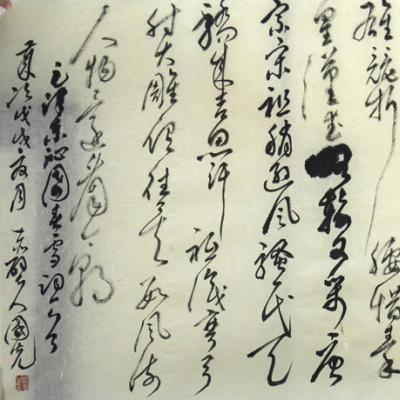 雄競折腰惜秦
皇漢武略輸文采唐
宗宋祖稍逊風騷一代天
驕成吉思汗祇識彎弓
射大雕俱往矣數風流
人物還看今朝
毛澤東沁園春雪詞
歲次戊戌夏月人國